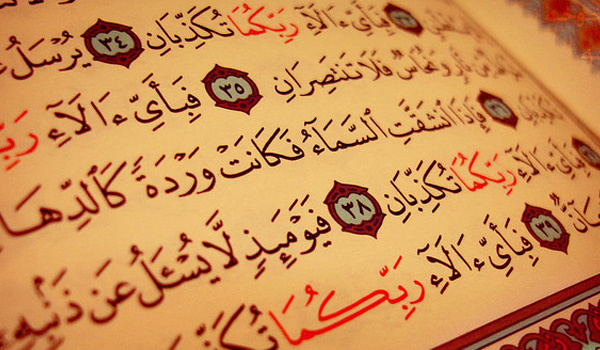 فَبِأَيِّ ءَالَآءِ رَبِّكُمَا تُكَذِّبَانِ ٣٤ يُرْسَلُ
نَّارٍ وَنُحَاسٌ فَلَا تَنتَصِرَانِ ٣٥ فَبِأَيِّ ءَالَآءِ رَبِّ
٣٦ فَإِذَا ٱنشَقَّتِ ٱلسَّمَآءُ فَكَانَتْ وَرْدَةً كَٱلدِّهَا
فَبِأَيِّ ءَالَآءِ رَبِّكُمَا تُكَذِّبَانِ ٣٨ فَيَوْمَئِذٍ لَّا يُسْـَٔلُ عَن ذَنۢبِهِۦٓ
٣٩ فَبِأَيِّ ءَالَآءِ رَبِّكُمَا تُكَذِّ